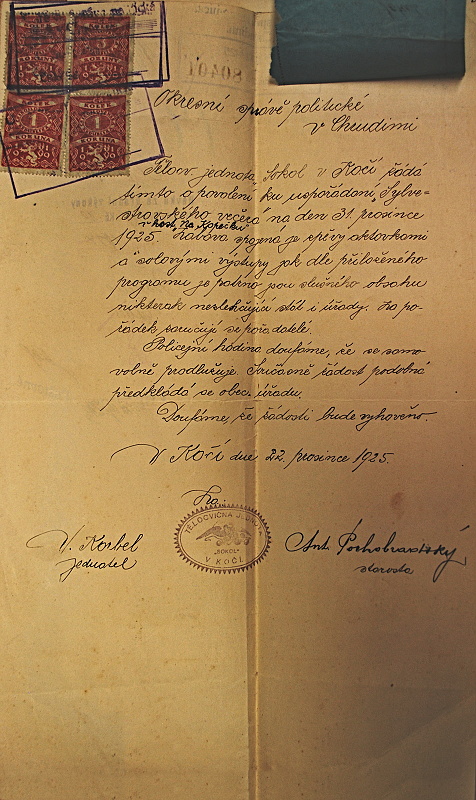 Okresní správě politické
v Chrudimi
Tělocv. jednota Sokol v Kočí žádá
tímto o povolení ku uspořádání „Sylve-
strovského večera" na den 31. prosince
v host. „Na Kopečku"
1925. Zábava spojená je zpěvy aktovkami
a solovými výstupy jak dle přiloženého
programu je patrno jsou slušného obsahu
nikterak nezlehčující stát i úřady. Za po-
řádek zaručují se pořadatelé.
Policejní hodina doufáme, že se samo-
volně prodlužuje. Současně žádost podobná
předkládá se obec. úřadu.
Doufáme, že žádosti bude vyhověno.
V Kočí dne 22. prosince 1925.
Za:
TĚLOCVIČNÁ JEDNOTA
„SOKOL"
V KOČÍ
V. Korbel
jednatel
Ant.
starosta
KOLEK
KORUNY
1
5